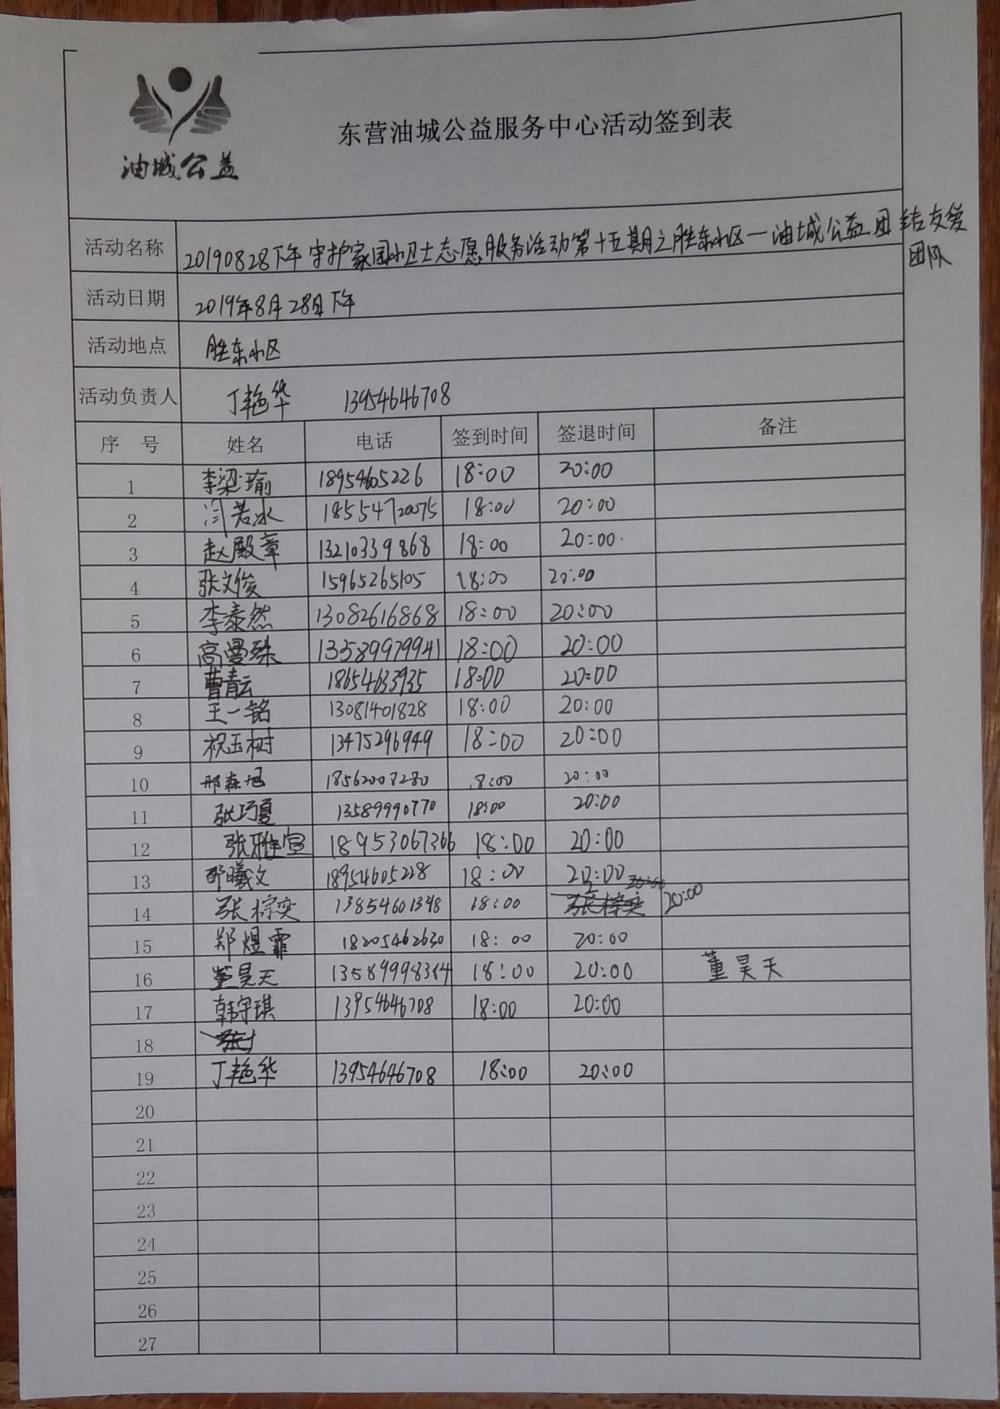 油城公益
东营油城公益服务中心活动签到表
活动名称 20190828下午守护家园小卫士志愿服务活动第十五期之胜东小区—油城公益团结友爱
团队
活动日期 2019年8月28日下午
活动地点 胜东小区
活动负责人 丁艳华 13954646708
序 号 姓名 电话 签到时间 签退时间 备注
1 李梁瑜 1895465226 18:00 20:00
2 闫若冰 18554720075 18:00 20:00
3 赵殿章 13210339868 18:00 20:00
4 张文俊 15965265105 18:00 20:00
5 李泰然 13082616868 18:00 20:00
6 高曼殊 13589979941 18:00 20:00
7 曹青云 18654633935 18:00 20:00
8 王一铭 13081401828 18:00 20:00
9 祝玉树 13475296949 18:00 20:00
10 邢森旭 18562003280 18:00 20:00
11 张巧夏 13589990770 18:00 20:00
12 张雅宣 18953067366 18:00 20:00
13 邵曦文 18954605228 18:00 20:00
14 张棕奕 13854601348 18:00 20:00
15 郑煜霏 18205462630 18:00 20:00
16 董昊天 13589998384 18:00 20:00 董昊天
17 韩守琪 13954646708 18:00 20:00
18
19 丁艳华 13954646708 18:00 20:00
20
21
22
23
24
25
26
27